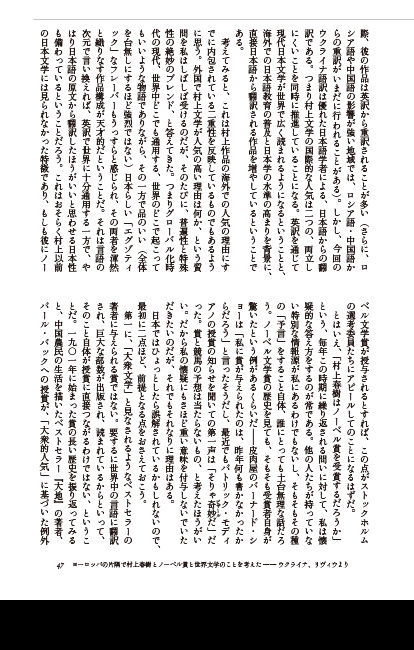 際、彼の作品は英訳から重訳されることが多い（さらに、ロ
シア語や中国語の影響が強い地域では、ロシア語・中国語か
らの重訳がいまだに行われることがある）。しかし、今回の
ウクライナ語訳は優れた日本語学者による、日本語からの翻
訳である。つまり村上文学の国際的な人気は二つの、両立し
にくいことを同時に推進していることになる。英訳を通じて
現代日本文学が世界で広く読まれるようになるということと、
海外での日本語教育の普及と日本学の水準の高まりを背景に、
直接日本語から翻訳される作品を増やしているということで
ある。
　考えてみると、これは村上作品の海外での人気の理由にす
でに内包されている二重性を反映しているものでもあるよう
に思う。外国で村上文学が人気の高い理由は何か、という質
問を私はしばしば受けるのだが、そのたびに「普遍性と特殊
性の絶妙のブレンド」と答えてきた。つまりグローバル化時
代の現代、世界中どこでも通用する、世界のどこで起こって
もいいような物語でありながら、その一方で品のいい（全体
を台無しにするほど強烈ではない）日本らしい「エグゾティ
ック」なフレーバーもうっすらと感じられ、その両者を渾然
と織りなす作品構成が天才的だということだ。それは言語の
次元で言い換えれば、英訳で世界に十分通用する一方で、や
はり日本語の原文から翻訳したほうがいいと思わせる日本性
も備わっているということだろう。これはおそらく村上以前
の日本文学には見られなかった特徴であり、もしも彼にノー
ベル文学賞が授与されるとすれば、この点がストックホルム
の選考委員たちにアピールしてのことになるはずだ。
　とはいえ、「村上春樹はノーベル賞を受賞するだろうか」
という、毎年この時期に繰り返される問いに対して、私は懐
疑的な答え方をするのが常である。他の人たちが持っていな
い特別な情報源が私にあるわけでもないし、そもそもその種
の「予言」をすること自体、誰にとっても土台無理な話だろ
う。ノーベル文学賞の歴史を見ても、そもそも受賞者自身が
驚いたという例があるくらいだ――皮肉屋のバーナード・シ
ョーは「私に賞が与えられたのは、昨年何も書かなかったか
らだろう」と言ったそうだし、最近でもパトリック・モディ
アノの受賞の知らせを聞いての第一声は「そりゃ奇妙だ」だ
った。賞と競馬の予想は当たらないもの、と考えたほうがい
い。だから私の懐疑にもさほど重い意味を付与しないでいた
だきたいのだが、それでもそれなりに理由はある。
　日本ではひょっとしたら誤解されているかもしれないので、
最初に二点ほど、前提となる点をおさえておこう。
　第一に、「大衆文学」と見なされるようなベストセラーの
著者に与えられる賞ではない。要するに世界中の言語に翻訳
され、巨大な部数が出版され、読まれているからといって、
そのこと自体が授賞に直接つながるわけではない、というこ
とだ。一九〇一年に始まった賞の長い歴史を振り返ってみる
と、中国農民の生活を描いたベストセラー『大地』の著者、
パール・バックへの授賞が、「大衆的人気」に基づいた例外
47　ヨーロッパの片隅で村上春樹とノーベル賞と世界文学のことを考えた――ウクライナ、リヴィウより